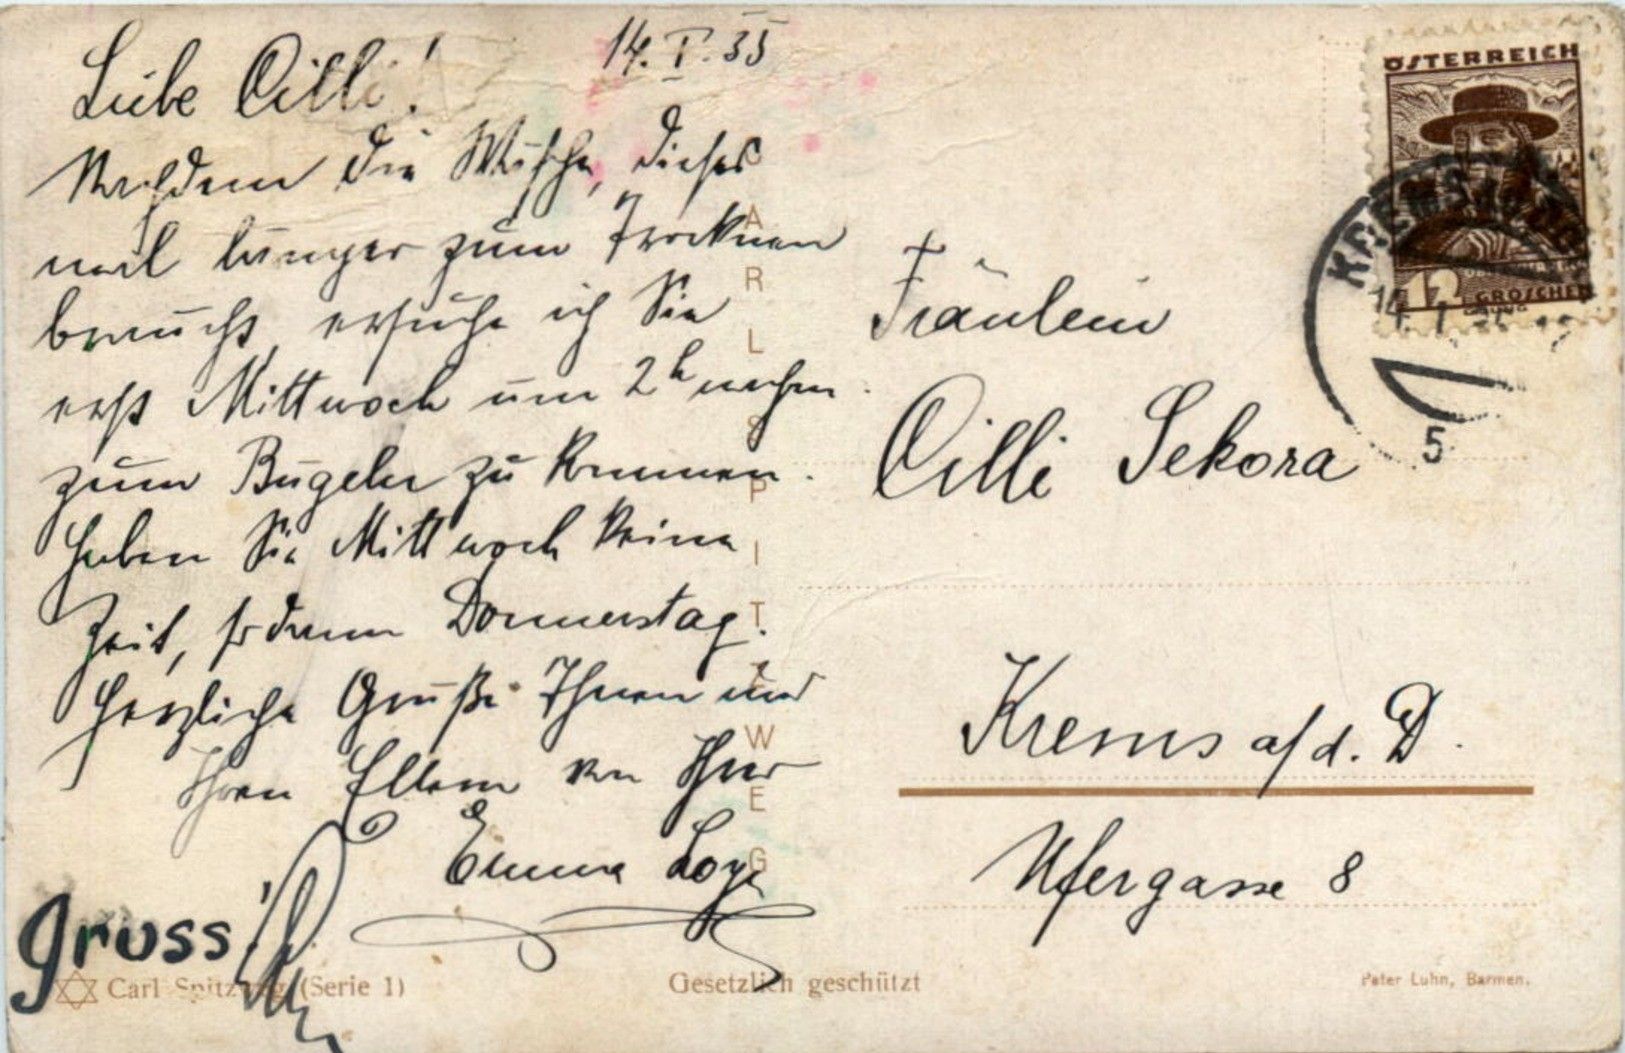 14. I. 35
Liebe Cilli!
Nachdem die Wäsche, dieses
mal länger zum Trocknen
braucht, ersuche ich Sie
erst Mittwoch um 2h nachm.
zum Bügeln zu kommen.
Haben Sie Mittwoch keine
Zeit, so dann Donnerstag.
Herzliche Grüße Ihnen und
Ihren Eltern von Ihrer
Emma
Gruss
CARL SPITZWEG
Fräulein
Cilli Sekora
Krems a/d. D.
Ufergasse 8
ÖSTERREICH
12
GROSCHEN
KREMS
14. I.
5
Carl Spitzweg (Serie 1)
Gesetzlich geschützt
Peter Luhn, Barmen.